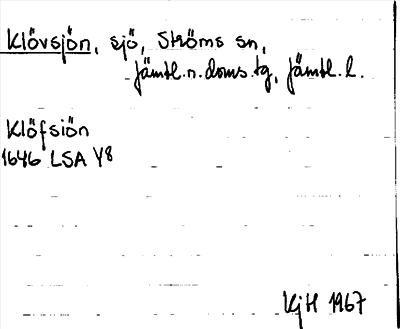 Klövsjön, sjö, Ströms sn,
Jämtl.n.doms.tg, Jämtl.l.
Klöfsiön
1646 LSA Y8
KjH 1967